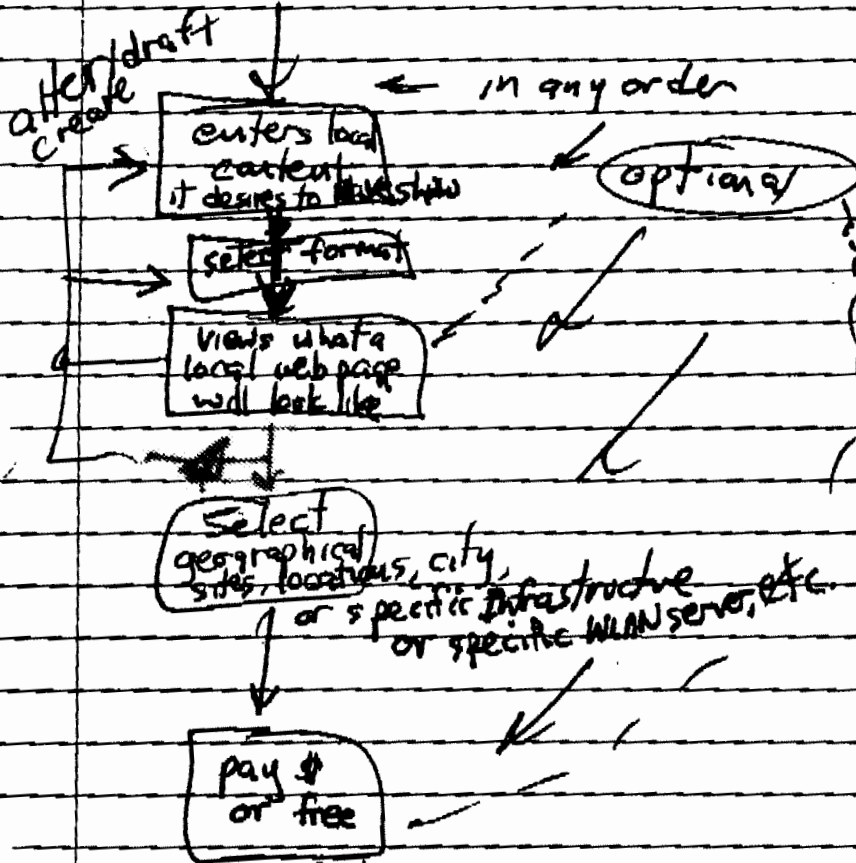 alter/draft
create
in any order
enters local
content
it desires to show
optional
select format
views what a
local web page
will look like
Select
geographical
sites, locations, city,
or specific Infrastructure
or specific WLAN server, etc.
pay $
or free